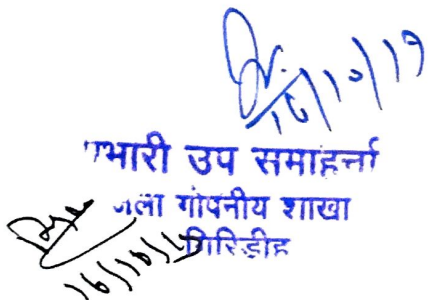 16/10/19
प्रभारी उप समाहर्त्ता
जिला गोपनीय शाखा
गिरिडीह
16/10/19